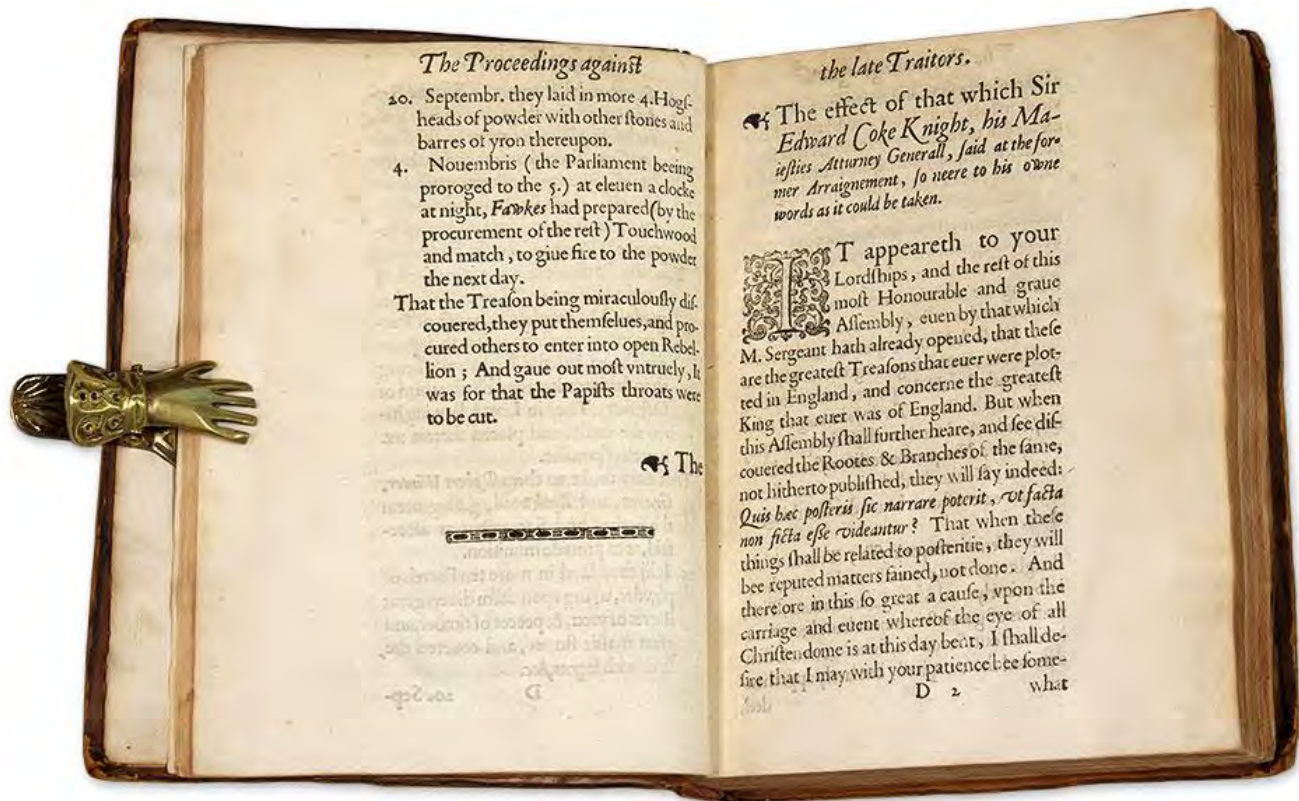 The Proceedings againſt
20. Septembr. they laid in more 4.Hogſ-
heads of powder with other ſtones and
barres of yron thereupon.
4. Nouembris (the Parliament beeing
proroged to the 5.) at eleuen a clocke
at night, Fawkes had prepared (by the
procurement of the reſt) Touchwood
and match, to giue fire to the powder
the next day.
That the Treaſon being miraculouſly diſ-
couered, they put themſelues, and pro-
cured others to enter into open Rebel-
lion; And gaue out moſt vntruely, It
was for that the Papiſts throats were
to be cut.
The
the late Traitors.
The effect of that which Sir
Edward Coke Knight, his Ma-
ieſties Atturney Generall, ſaid at the for-
mer Arraignement, ſo neere to his owne
words as it could be taken.
IT appeareth to your
Lordſhips, and the reſt of this
moſt Honourable and graue
Aſſembly, euen by that which
M. Sergeant hath already opened, that theſe
are the greateſt Treaſons that euer were plot-
ted in England, and concerne the greateſt
King that euer was of England. But when
this Aſſembly ſhall further heare, and ſee diſ-
couered the Rootes & Branches of the ſame,
not hitherto publiſhed, they will ſay indeed:
Quis hæc poſteris ſic narrare poterit, vt facta
non ficta eſſe videantur? That when theſe
things ſhall be related to poſteritie, they will
bee reputed matters fained, not done. And
therefore in this ſo great a cauſe, vpon the
carriage and euent whereof the eye of all
Chriſtendome is at this day bent, I ſhall de-
ſire that I may with your patience bee ſome-
D 2 what